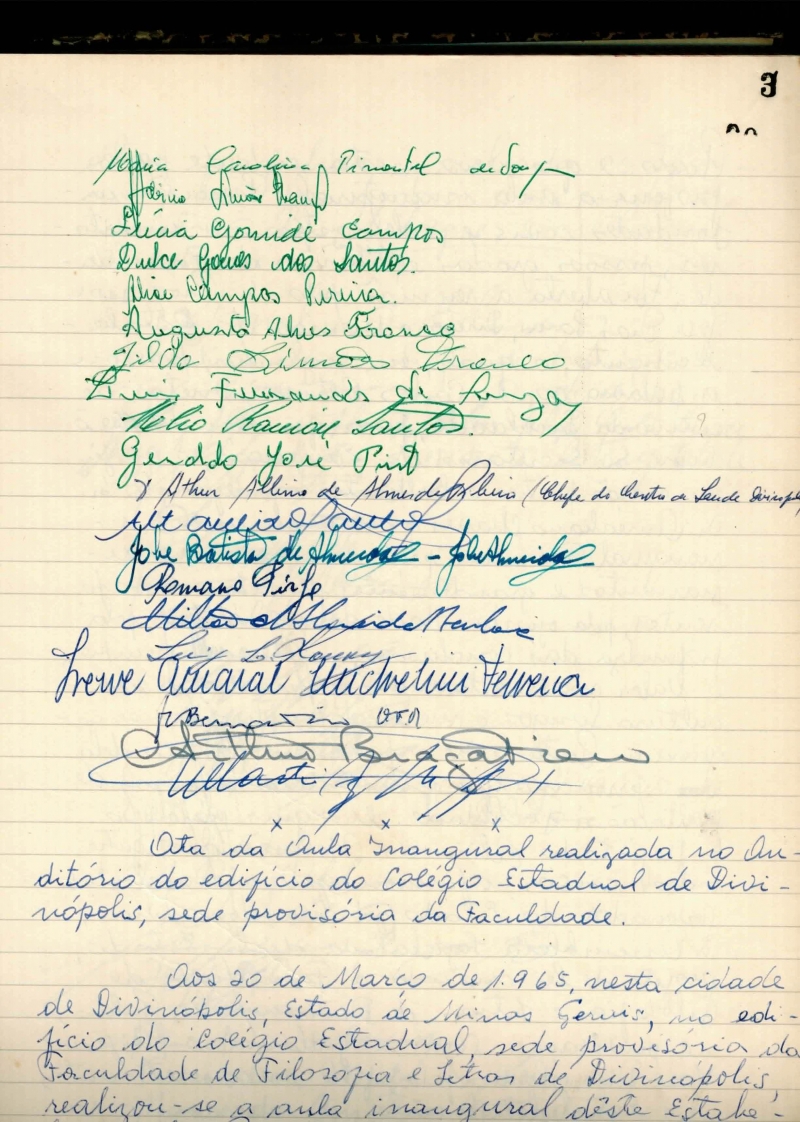 3
Maria Carolina Pimentel de Souza
Lúcia Gomide Campos
Dulce Gomes dos Santos.
Alice Campos Pereira.
Augusta Alves Franco
Zilda Simões Franco
Luiz Fernandes de Souza
Helio Santos.
Geraldo José Pinto
Arthur Albino de Almeida (Chefe do Centro de Saude
Jobe Batista de Almeida - Jobe Almeida
Romano
Milton d'Almeida
Luiz
Amaral Michelini Ferreira
Fr Bernardino OFM
x x x
Ata da Aula Inaugural realizada no Au-
ditório do edifício do Colégio Estadual de Divi-
nópolis, sede provisória da Faculdade.
Aos 20 de Março de 1.965, nesta cidade
de Divinópolis, Estado de Minas Gerais, no edi-
fício do Colégio Estadual, sede provisória da
Faculdade de Filosofia e Letras de Divinópolis,
realizou-se a aula inaugural dêste Estabe-